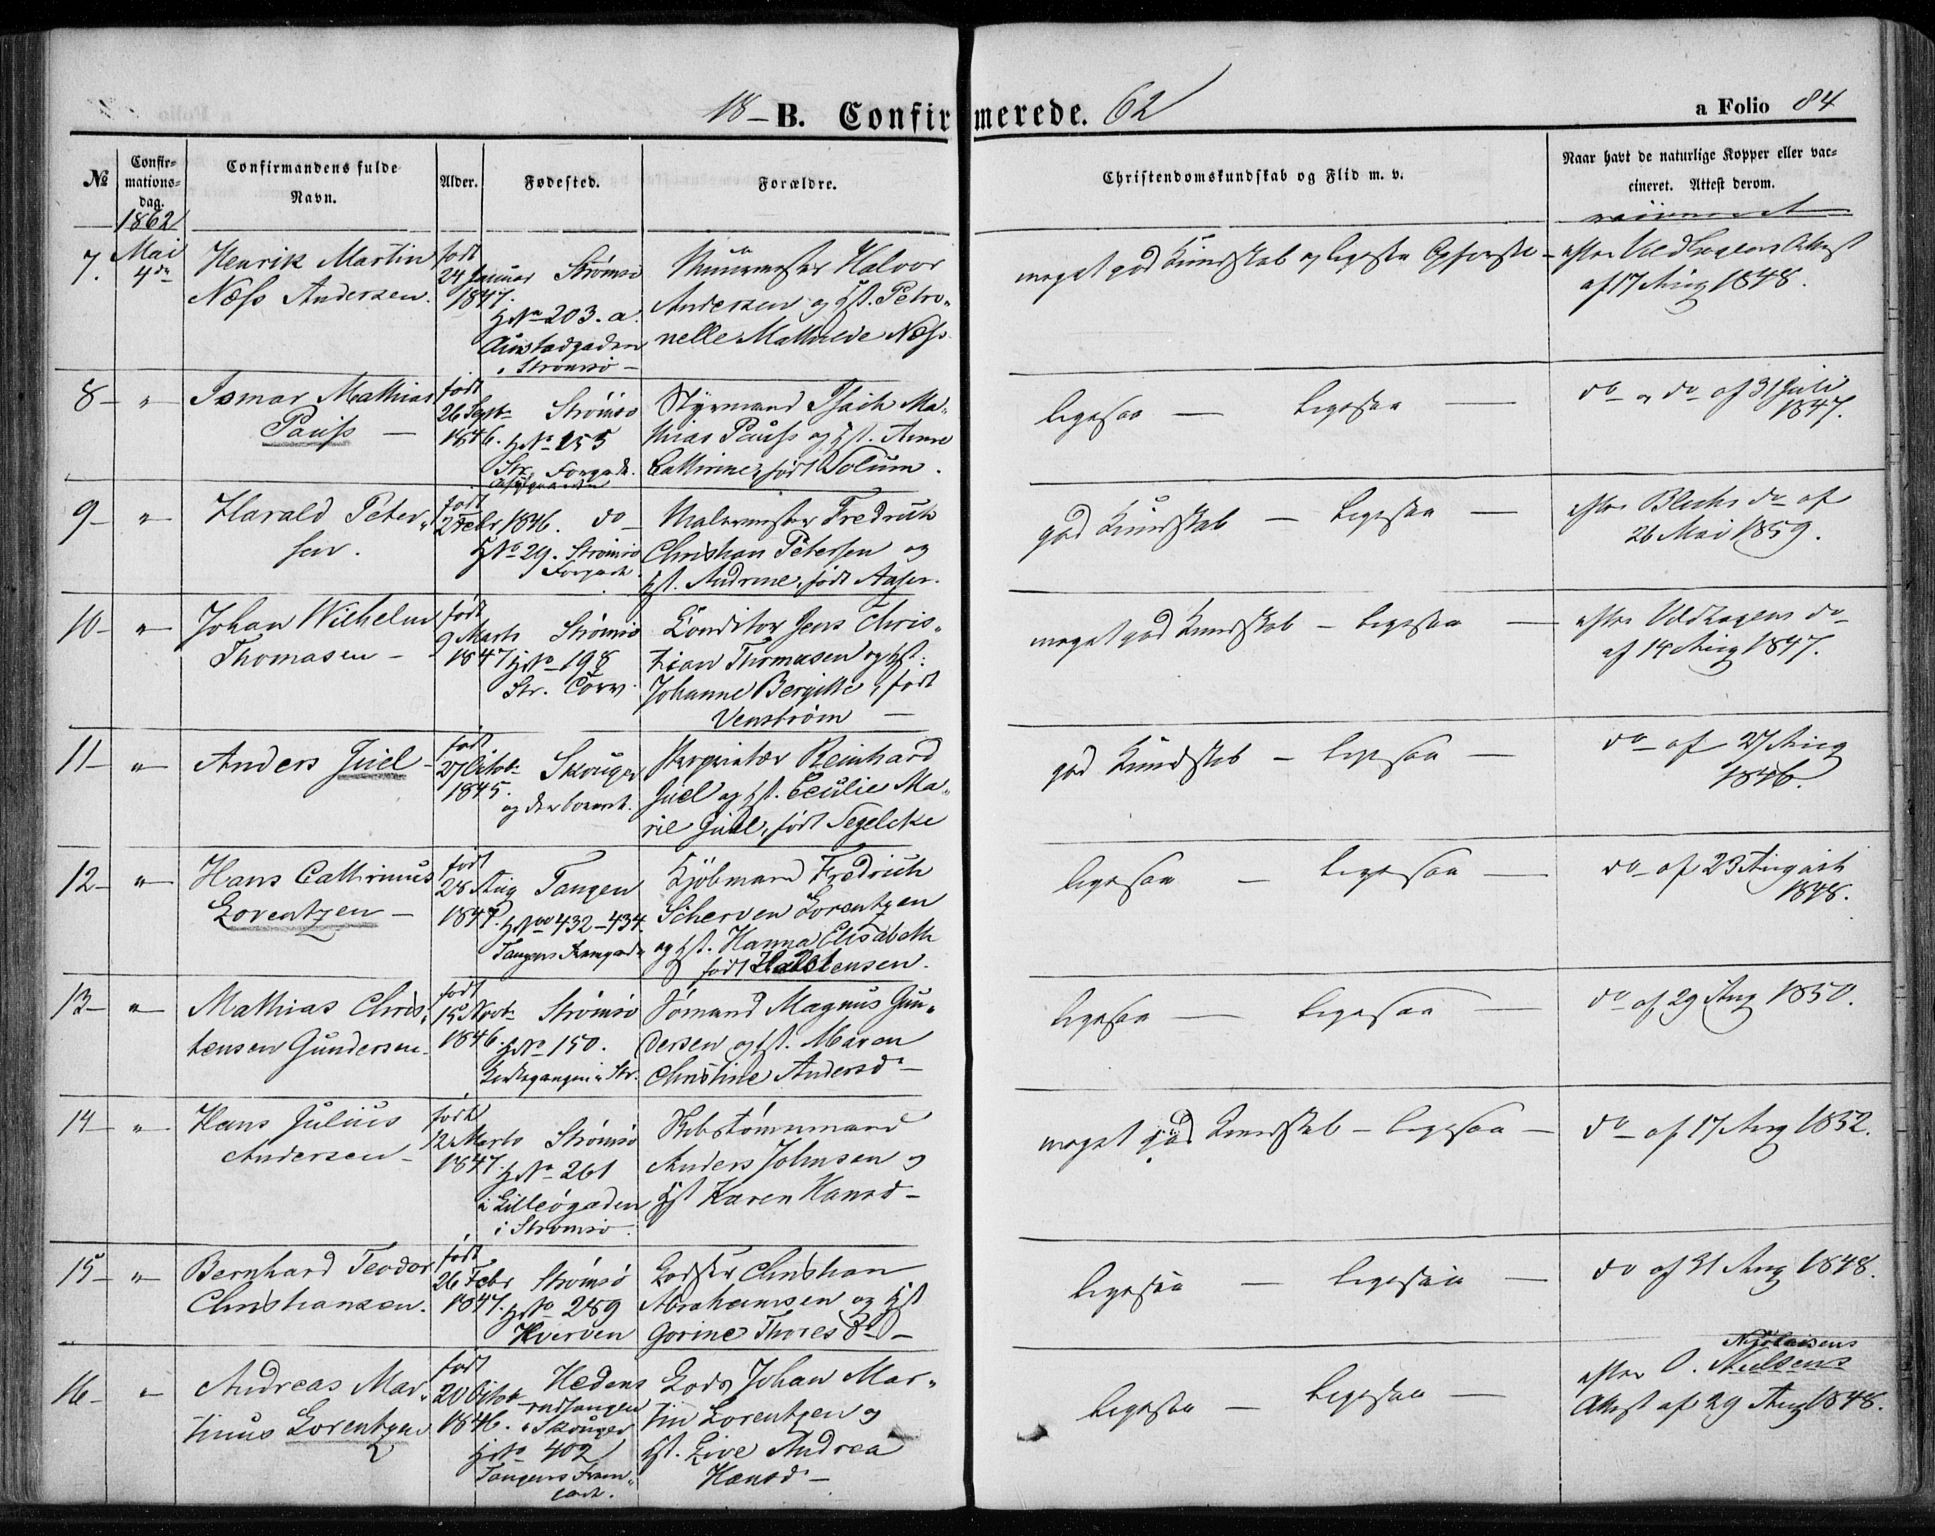 18 — B. Confirmerede. 62
a Folio 84
№
Confirmations-dag.
Confirmandens fulde Navn.
Alder.
Fødested.
Forældre.
Christendomskundskab og Flid m. v.
Naar havt de naturlige Kopper eller vac-
cineret. Attest derom.
1862
7. Mai 4de
Henrik Martin
Næss Andersen.
født
24 Januar
1847.
Strømsø
H No 203. a.
i Strømsø
Muurmester Halvor
Andersen og Hst. Petro-
nelle Mathilde Næss
meget god Kundskab og ligesaa
af 17 Aug 1848.
8 — "
Ismar Mathias
Pauss —
født
26 Sept
1846.
Strømsø
H No 155
Str. Forgade.
Styrmand Isach Ma-
thias Pauss og Hst. Anne
Cathrine, født Solum.
ligesaa — ligesaa —
do " do af 31 Juli
1847.
9 — "
Harald Peter-
sen.
født
2 Febr 1846.
do
H No 29. Strømsø
Forgade.
Malermester Fredrich
Christian Petersen og
Hst. Andrine, født
god Kundskab — ligesaa —
efter do af
26 Mai 1859.
10 — "
Johan Wilhelm
Thomasen —
født
9 Marts
1847
Strømsø
H No 198
Str. Torv.
Conditor Jens Chris-
tian Thomasen og Hst.
Johanne Bergitte, født
Venstrøm —
meget god Kundskab — ligesaa —
af 14 Aug 1847.
11 — "
Anders Juel —
født
27 Octob
1845.
Skouger
Reinhard
Juel og Hst. Cecilie Ma-
rie Juel, født Tegelcke
god Kundskab — ligesaa —
do af 27 Aug
1846.
12 — "
Hans Cathrinus
Lorentzen —
født
28 Aug
1847.
Tangen
H No 432-434.
Kjøbmand Fredrich
Scherven Lorentzen
og Hst. Hanna Elisabeth
født Halstensen.
ligesaa — ligesaa —
do af 23 August
1848.
13 — "
Mathias Chris-
tensen Gundersen.
født
15 Novb
1846.
Strømsø
H No 150.
Kirkegangen i Str.
Sømand Magnus Gun-
dersen og Hst. Maren
Christine Andersd —
ligesaa — ligesaa —
do af 29 Aug 1850.
14 — "
Hans Julius
Andersen —
født
12 Marts
1847.
Strømsø
H No 261
i Lilleøgaden
i Strømsø
Skibstømmermand
Anders Johnsen og
Hst Karen Hansd —
meget god Kundskab — ligesaa —
do af 17 Aug 1852.
15 — "
Bernhard Teodor
Christiansen.
født
26 Febr
1847.
Strømsø
H No 289
Hverven
Christian
Abrahamsen og Hst
Gorine Thoresd —
ligesaa — ligesaa —
do af 31 Aug 1848.
16 — "
Andreas Mar-
tinus Lorentzen
født
20 Octob
1846.
Hedens-
rudtangen
i Skouger
H No 402
Tangens Frem-
gade.
Lods Johan Mar-
tin Lorentzen og
Hst. Live Andrea
Hansd —
ligesaa — ligesaa —
Nicolaisens
efter O. Nielsens
Attest af 29 Aug 1848.